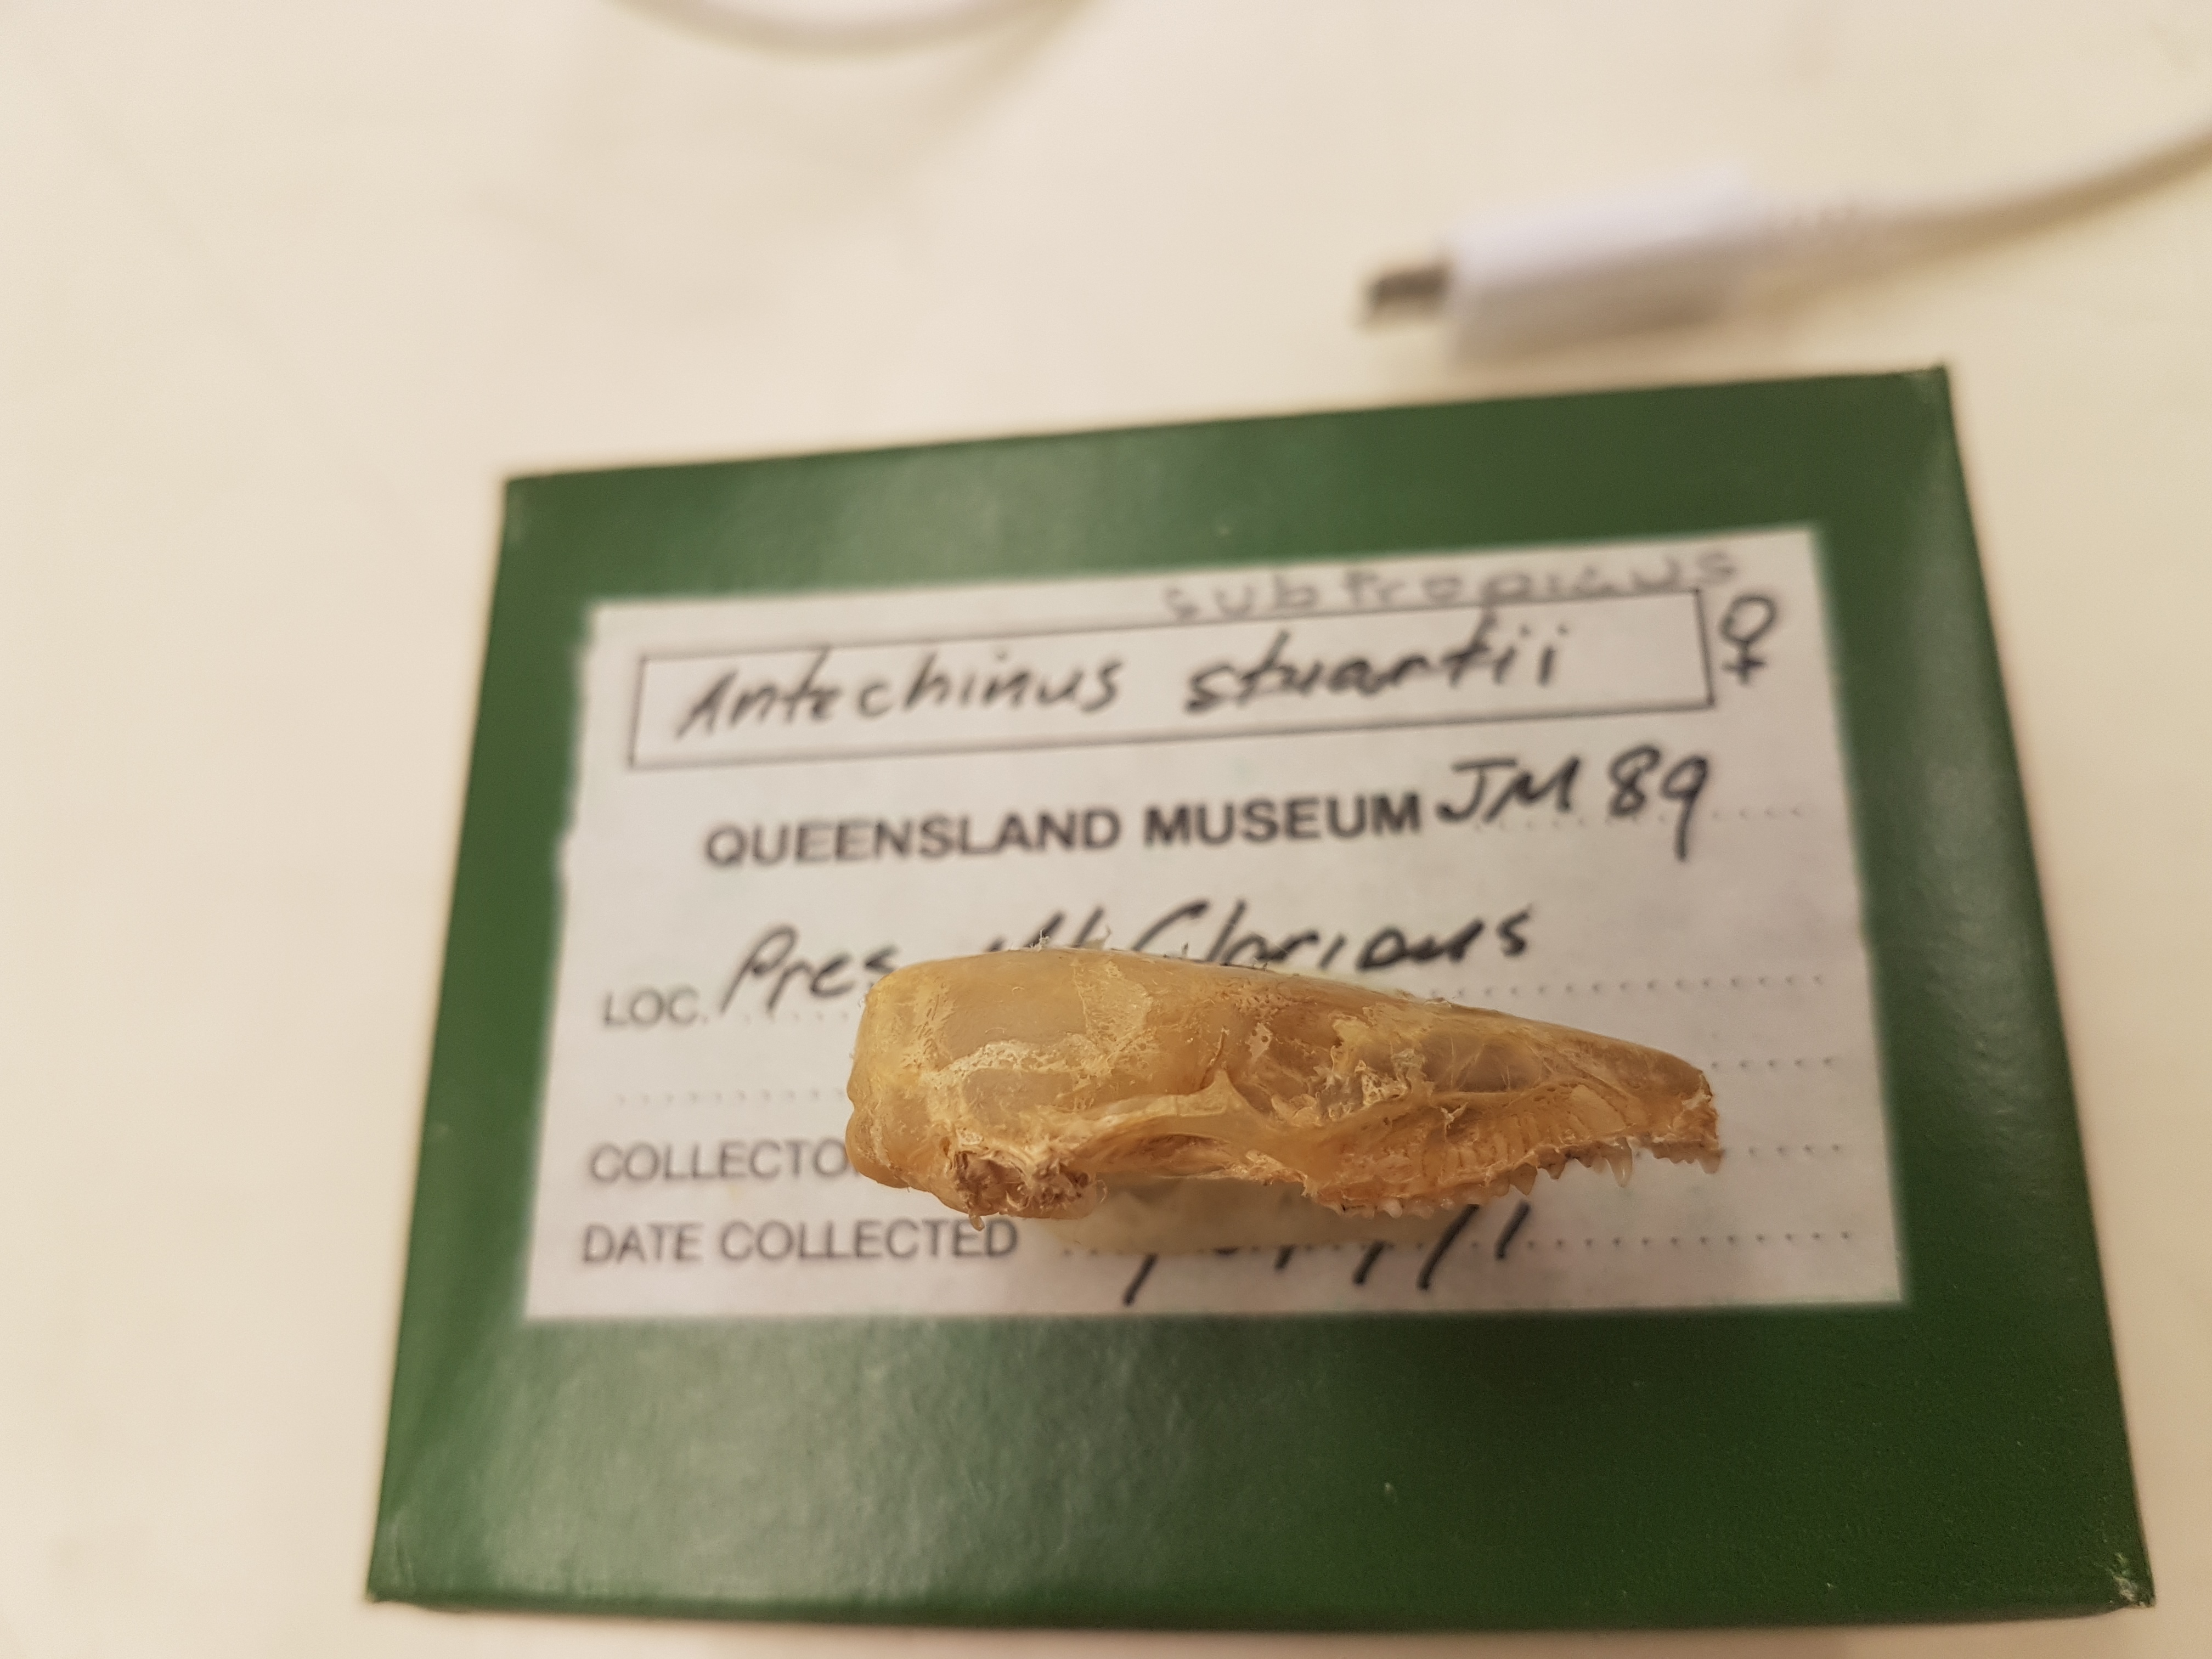 subtropicus
Antechinus stuartii ♀
QUEENSLAND MUSEUM JM 89
LOC. Pres Mt Glorious
COLLECTO
DATE COLLECTED